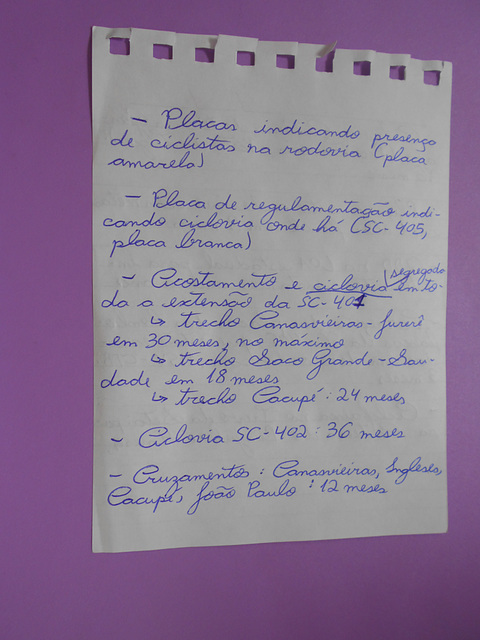 - Placas indicando presença
de ciclistas na rodovia (placa
amarela)
- Placa de regulamentação indi-
cando ciclovia onde há (SC-405,
placa branca)
- Acostamento e ciclovia segregada em to-
da a extensão da SC-401
↳ trecho Canasvieiras-Jurerê
em 30 meses, no máximo
↳ trecho Saco Grande-Sau-
dade em 18 meses
↳ trecho Cacupé: 24 meses
- Ciclovia SC-402: 36 meses
- Cruzamentos: Canasvieiras, Ingleses,
Cacupé, João Paulo: 12 meses